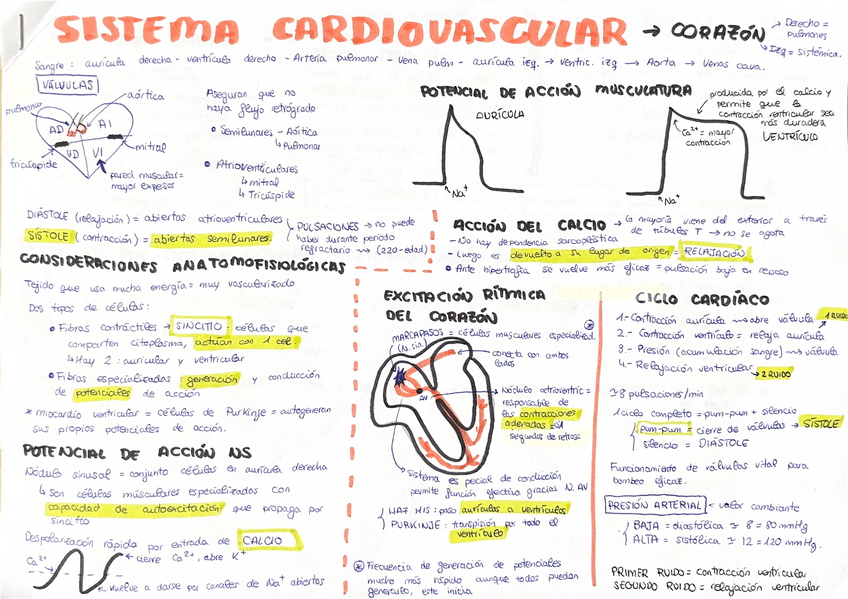 SISTEMA CARDIOVASCULAR → CORAZÓN
Derecho = pulmones
Izq = Sistémica.
Sangre: aurícula derecha - ventrículo derecho - Arteria pulmonar - Vena pulm - aurícula izq. → Ventríc. izq → Aorta → Venas cava.
VÁLVULAS
pulmonar
aórtica
AD
AI
VD
VI
mitral
tricúspide
pared muscular =
mayor espesor
Aseguran que no
haya flujo retrógrado
• Semilunares - Aórtica
↳ Pulmonar
• Atrioventriculares
↳ mitral
↳ Tricúspide
POTENCIAL DE ACCIÓN MUSCULATURA
AURÍCULA
Na+
producida por el calcio y
permite que la
contracción ventricular sea
más duradera
Ca2+ = mayor
contracción
VENTRÍCULO
Na+
DIÁSTOLE (relajación) = abiertas atrioventriculares
SÍSTOLE (contracción) = abiertas semilunares.
PULSACIONES → no puede
haber durante período
refractario → (220-edad)
ACCIÓN DEL CALCIO → la mayoría viene del exterior a través
de túbulos T → no se agota
- No hay dependencia sarcoplástica
- Luego es devuelto a su lugar de origen = RELAJACIÓN
• Ante hipertrofia se vuelve más eficaz = pulsación baja en reposo
CONSIDERACIONES ANATOMOFISIOLÓGICAS
Tejido que usa mucha energía = muy vascularizado
Dos tipos de células:
• Fibras contráctiles → SINCITIO: células que
comparten citoplasma, actúan con 1 cel.
↳ Hay 2: auricular y ventricular
• Fibras especializadas = generación y conducción
de potenciales de acción
* miocardio ventricular = células de Purkinje = autogeneran
sus propios potenciales de acción.
POTENCIAL DE ACCIÓN NS
Nódulo sinusal = conjunto células en aurícula derecha
↳ son células músculares especializadas con
capacidad de autoexcitación que propaga por
sincitio
Despolarización rápida por entrada de CALCIO
Ca2+
cierre Ca2+, abre K+
vuelve a darse por canales de Na+ abiertos
EXCITACIÓN RÍTMICA
DEL CORAZÓN
MARCAPASOS = células musculares especialized.
(N. sin.)
conecta con ambos
lados
AV
Nódulo atriventric =
responsable de
las contracciones
segundos de retraso
sistema es pecial de conducción
permite función efectiva gracias N. AV
HAZ HIS: paso aurículas a ventrículos
PURKINJE: por todo el
ventrículo
* Frecuencia de generación de potenciales
mucho más rápido aunque todos puedan
generarlo, este inicia
CICLO CARDÍACO
1.- Contracción aurícula → abre válvula 1 RUIDO
2.- Contracción ventrículo = relaja aurícula
3.- Presión (acumulación sangre) → válvula
4.- Relajación ventricular → 2 RUIDO
pulsaciones/min
1 ciclo completo = pum-pum + silencio
pum-pum = cierre de válvulas → SÍSTOLE
silencio = DIÁSTOLE
Funcionamiento de válvulas vital para
bombeo eficaz.
PRESIÓN ARTERIAL = valor cambiante
BAJA = diastólica ≃ 8 = 80 mmHg
ALTA = sistólica ≃ 12 = 120 mmHg.
PRIMER RUIDO = contracción ventricular
SEGUNDO RUIDO = relajación ventricular